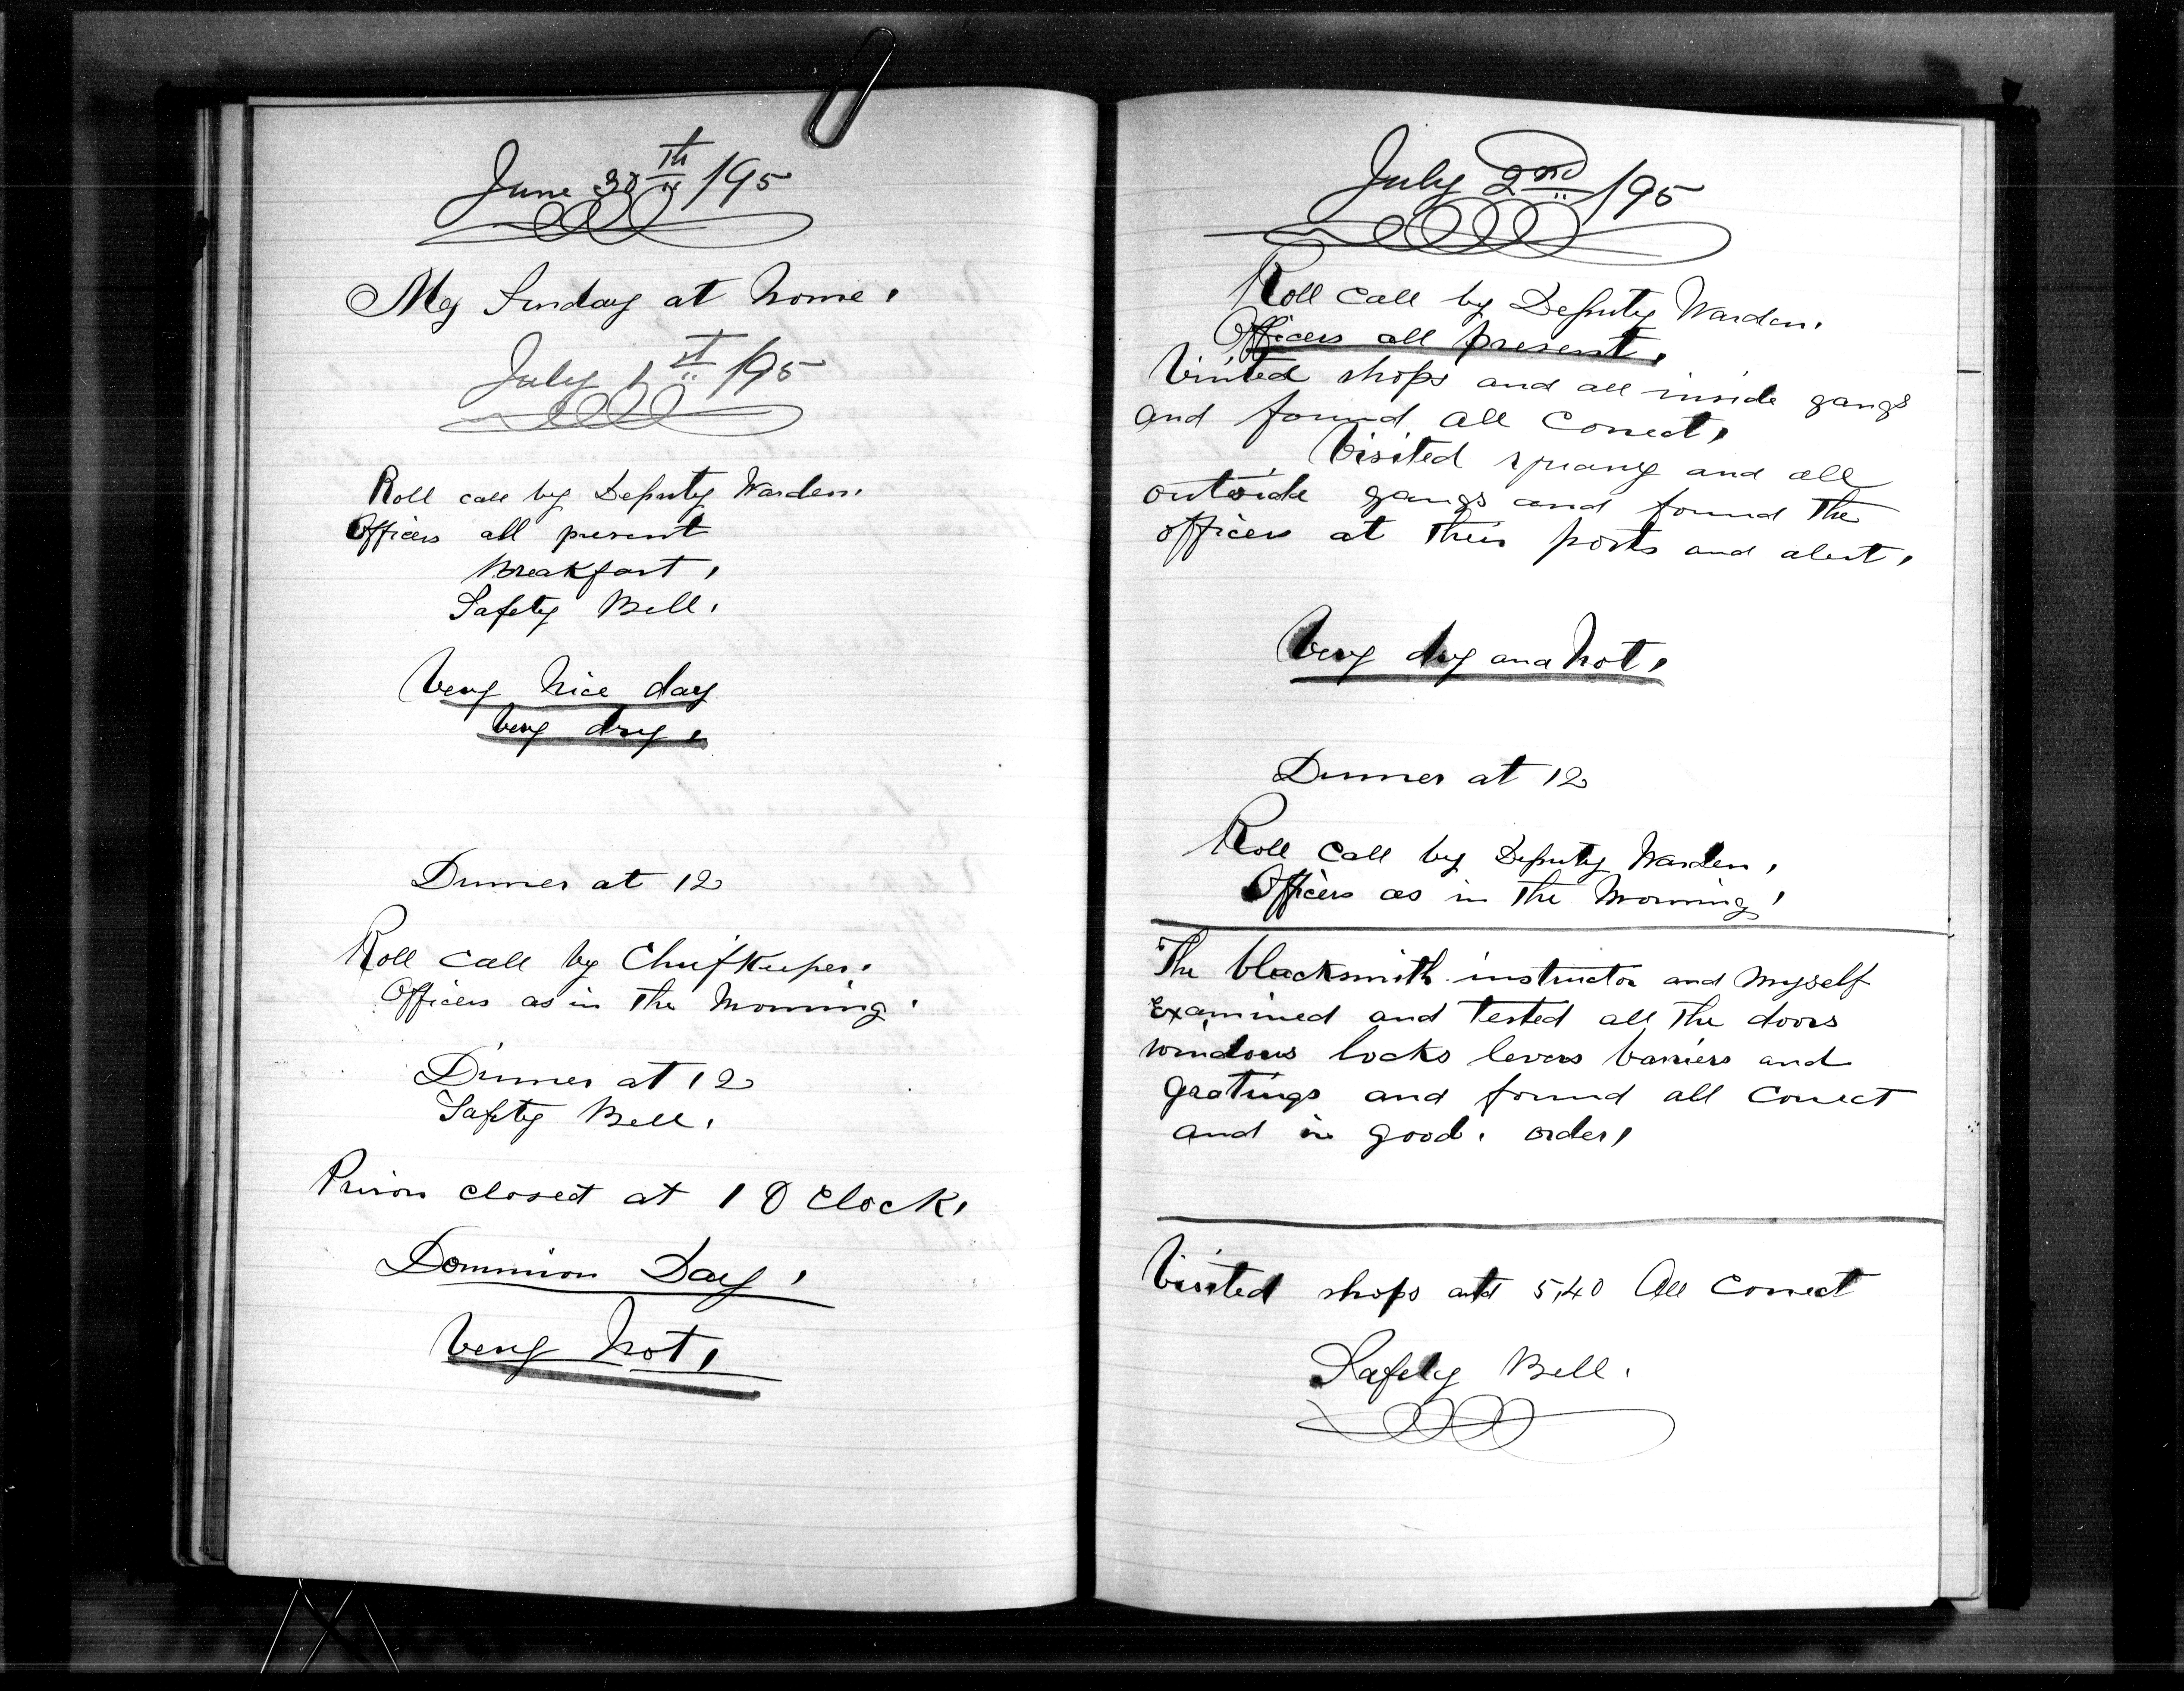 June 30th /95
My Sunday at home.
July 1st /95
Roll call by Deputy Warden.
Officers all present
Breakfast.
Safety Bell.
Very nice day
Very dry.
Dinner at 12
Roll call by Chief Keeper.
Officers as in the Morning.
Dinner at 12
Safety Bell.
Prison closed at 1 O Clock.
Dominion Day.
Very hot.
July 2nd /95
Roll call by Deputy Warden.
Officers all present.
Visited shops and all inside gangs
and found all correct.
Visited quarry and all
outside gangs and found the
officers at their posts and alert.
Very dry and hot.
Dinner at 12
Roll call by Deputy Warden.
Officers as in the Morning.
The blacksmith instructor and myself
Examined and tested all the doors
windows locks levers barriers and
gratings and found all correct
and in good. order.
Visited shops at 5.40 All correct
Safety Bell.